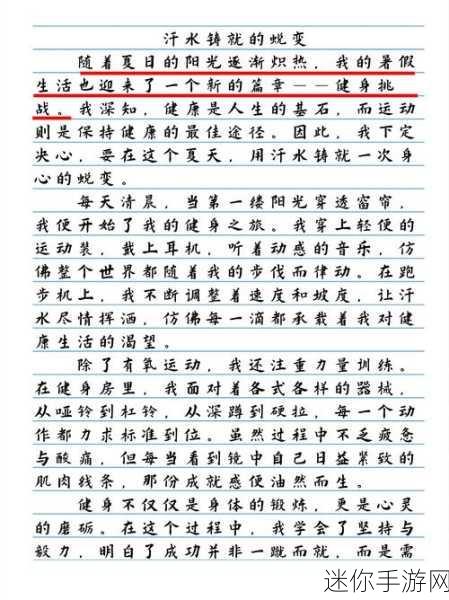 汗水铸就的蜕变
随着夏日的阳光逐渐炽热，我的暑假
生活也迎来了一个新的篇章——健身挑
战。我深知，健康是人生的基石，而运动
则是保持健康的最佳途径。因此，我下定
决心，要在这个夏天，用汗水铸就一次身
心的蜕变。
每天清晨，当第一缕阳光穿透窗帘，
我便开始了我的健身之旅。我穿上轻便的
运动装，戴上耳机，听着动感的音乐，仿
佛整个世界都随着我的步伐而律动。在跑
步机上，我不断调整着速度和坡度，让汗
水尽情挥洒，仿佛每一滴都承载着我对健
康生活的渴望。
除了有氧运动，我还注重力量训练。
在健身房里，我面对着各式各样的器械，
从哑铃到杠铃，从深蹲到硬拉，每一个动
作都力求标准到位。虽然过程中不乏疲惫
与酸痛，但每当看到镜中自己日益紧致的
肌肉线条，那份成就感便油然而生。
健身不仅仅是身体的锻炼，更是心灵
的磨砺。在这个过程中，我学会了坚持与
毅力，明白了成功并非一蹴而就，而是需
迷你手游网